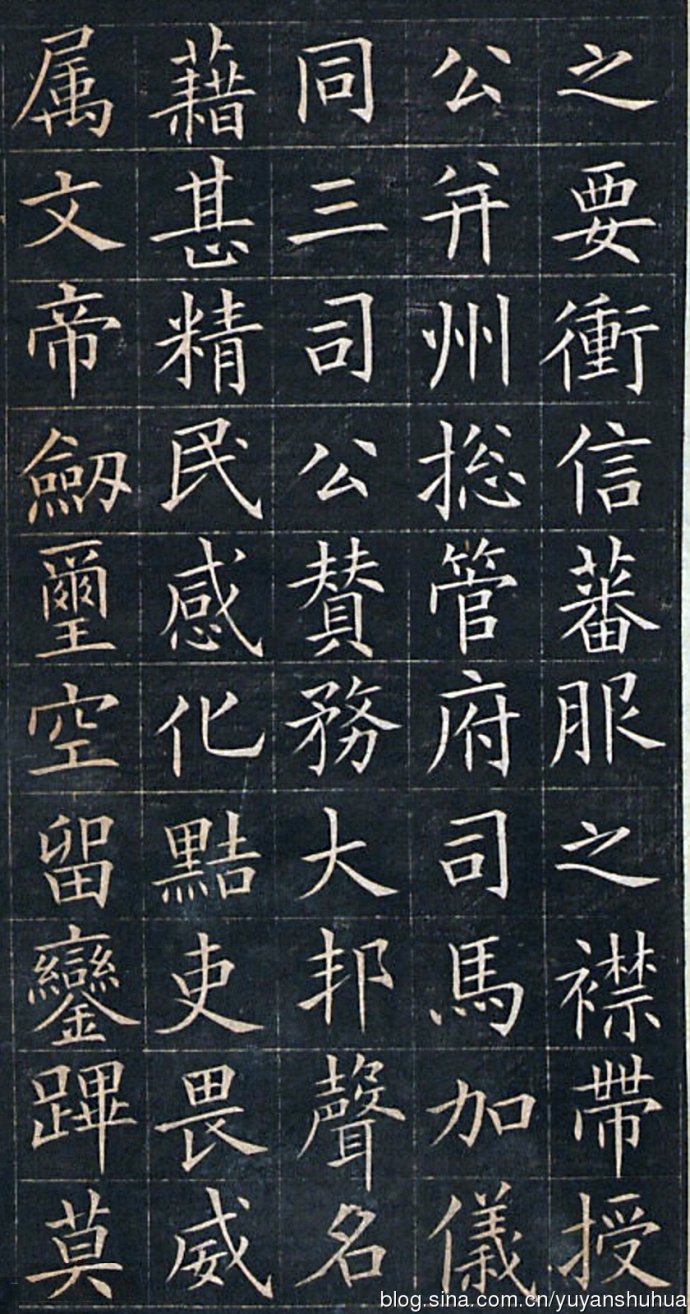 之要衝信蕃服之襟帶授
公并州捴管府司馬加儀
同三司公賛務大邦聲名
藉甚精民感化黠吏畏威
属文帝劒璽空留鑾蹕莫
blog.sina.com.cn/yuyanshuhua